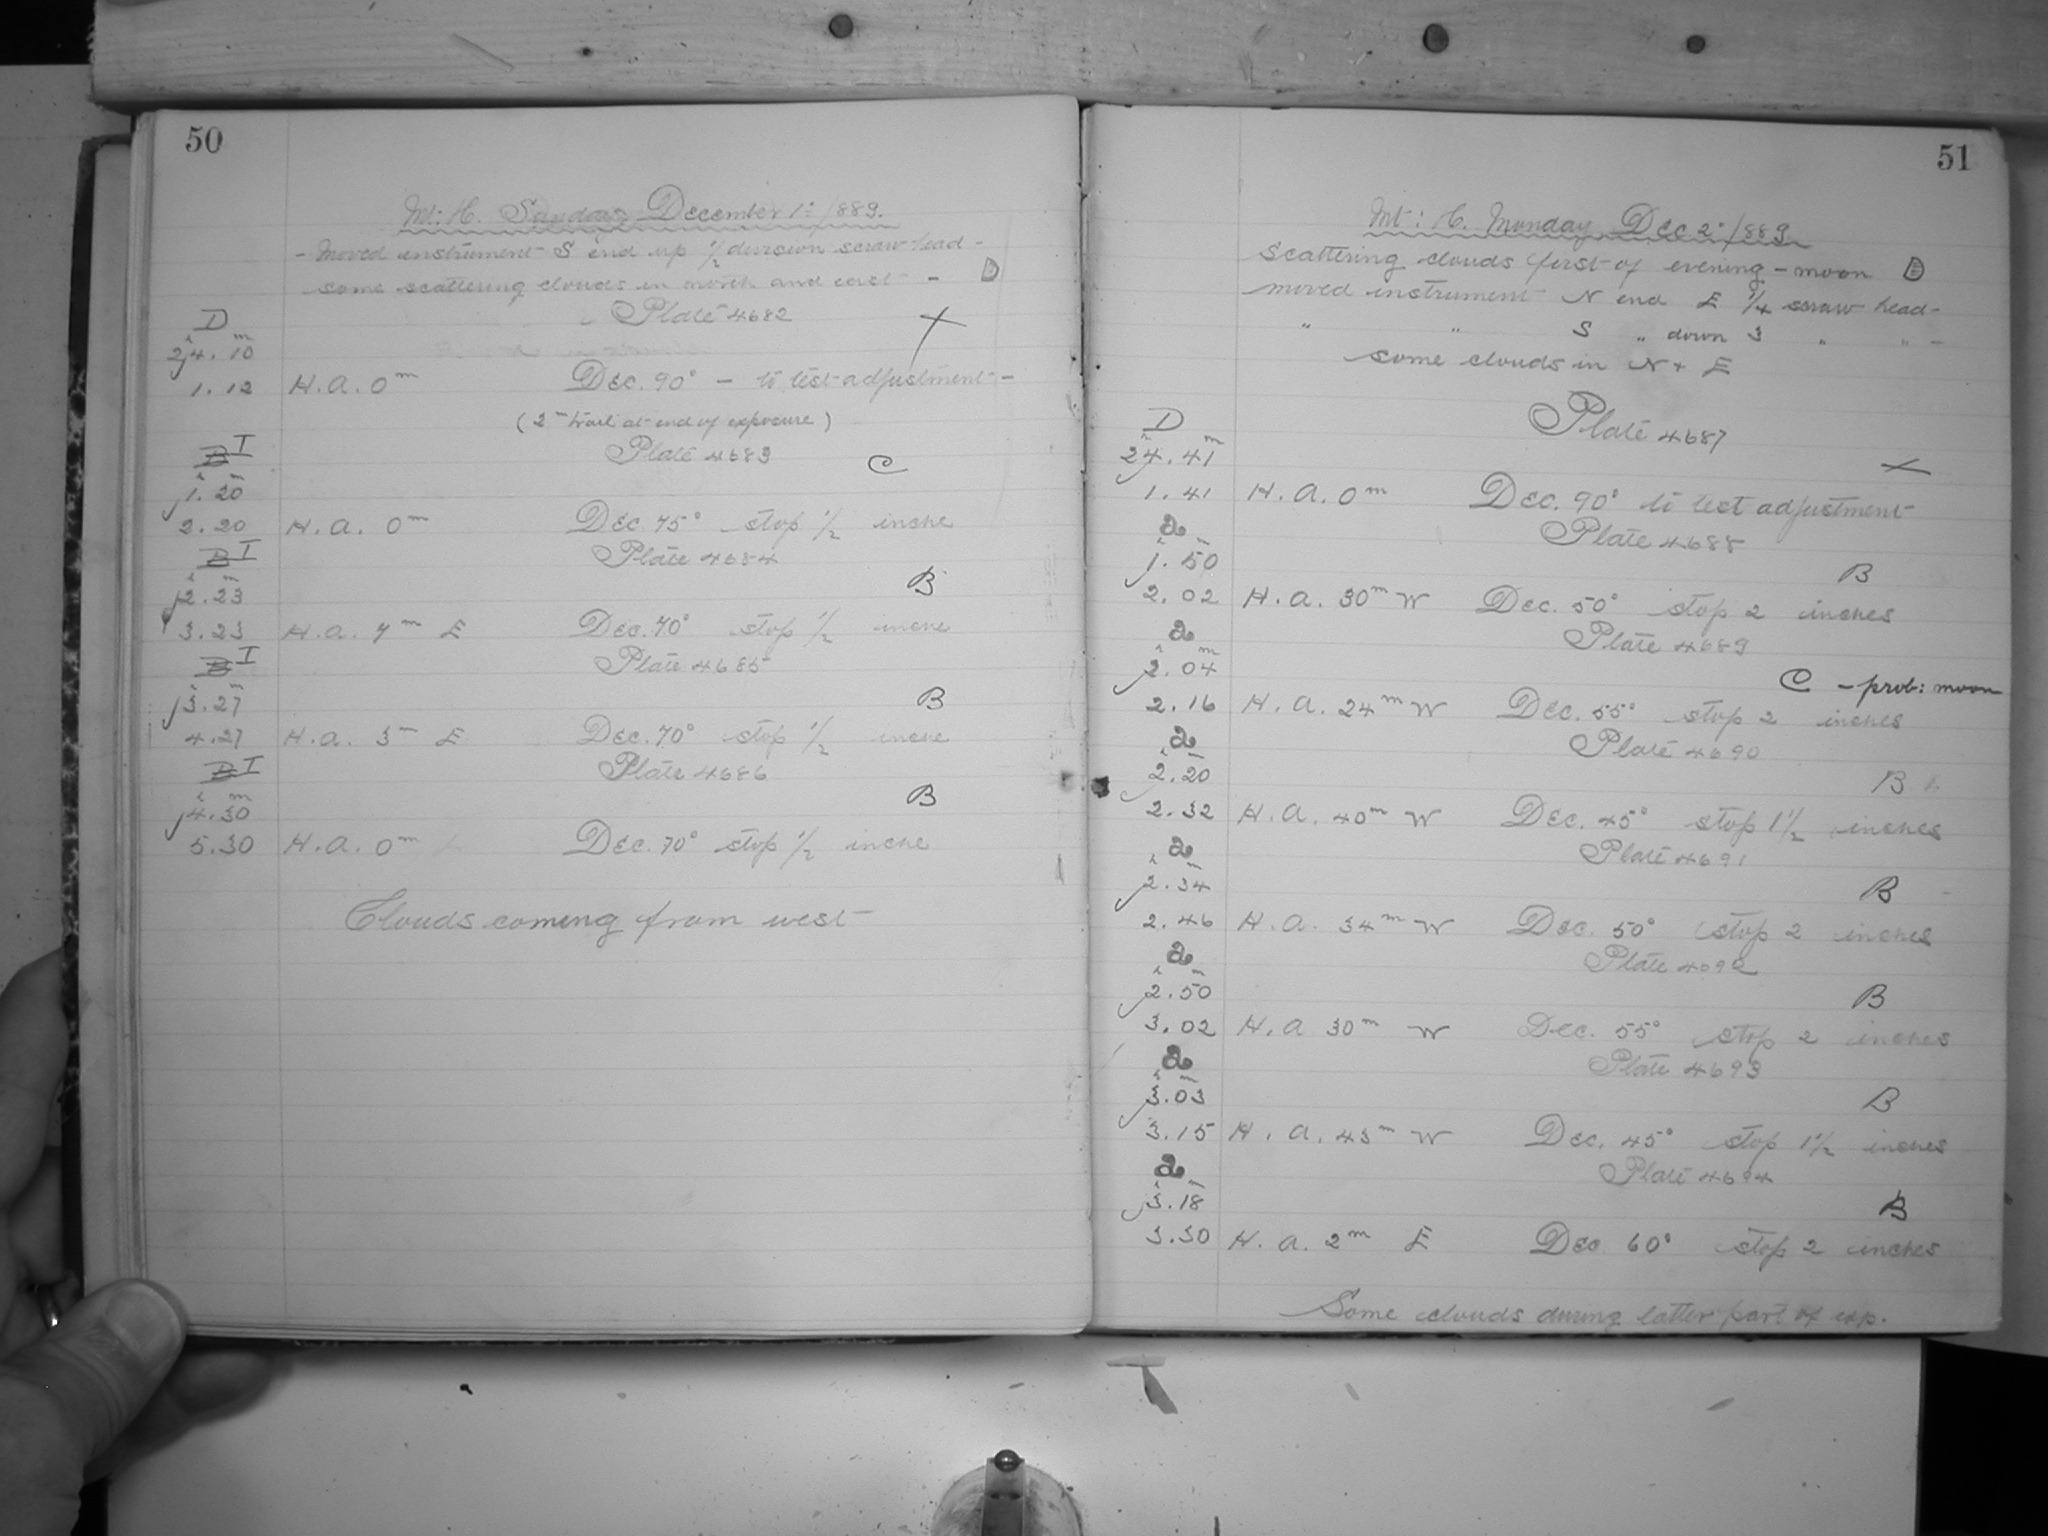 50
Mt: H. Sunday December 1: 1889.
- Moved instrument S end up 1/2 division scraw head -
some scattering clouds in north and east - D
Plate 4682
D
h m
24.10
1.12 H.A. 0m Dec. 90° - to test adjustment -
(2m trail at end of exposure)
Plate 4683
B I
C
h m
1.20
2.20 H.A. 0m Dec. 75° stop 1/2 inche
B I
Plate 4684
h m
2.23
B
3.23 H.A. 7m E Dec. 70° stop 1/2 inche
B I
Plate 4685
h m
3.27
B
4.27 H.A. 3m E Dec. 70° stop 1/2 inche
B I
Plate 4686
h m
4.30
B
5.30 H.A. 0m Dec. 70° stop 1/2 inche
Clouds coming from west
51
Mt: H. Monday Dec 2: 1889
Scattering clouds first of evening - moon D
moved instrument N end E 1/4 scraw head -
" " S " down 3 " " -
some clouds in N + E
Plate 4687
D
h m
24.41
1.41 H.A. 0m Dec. 90° to test adjustment
a
Plate 4688
h m
1.50
B
2.02 H.A. 30m W Dec. 50° stop 2 inches
a
Plate 4689
h m
2.04
C - prob: moon
2.16 H.A. 24m W Dec. 55° stop 2 inches
a
Plate 4690
h m
2.20
B
2.32 H.A. 40m W Dec. 45° stop 1 1/2 inches
a
Plate 4691
h m
2.34
B
2.46 H.A. 34m W Dec. 50° stop 2 inches
a
Plate 4692
h m
2.50
B
3.02 H.A. 30m W Dec. 55° stop 2 inches
a
Plate 4693
h m
3.03
B
3.15 H.A. 43m W Dec. 45° stop 1 1/2 inches
a
Plate 4694
h m
3.18
B
3.30 H.A. 2m E Dec 60° stop 2 inches
Some clouds during latter part of exp.